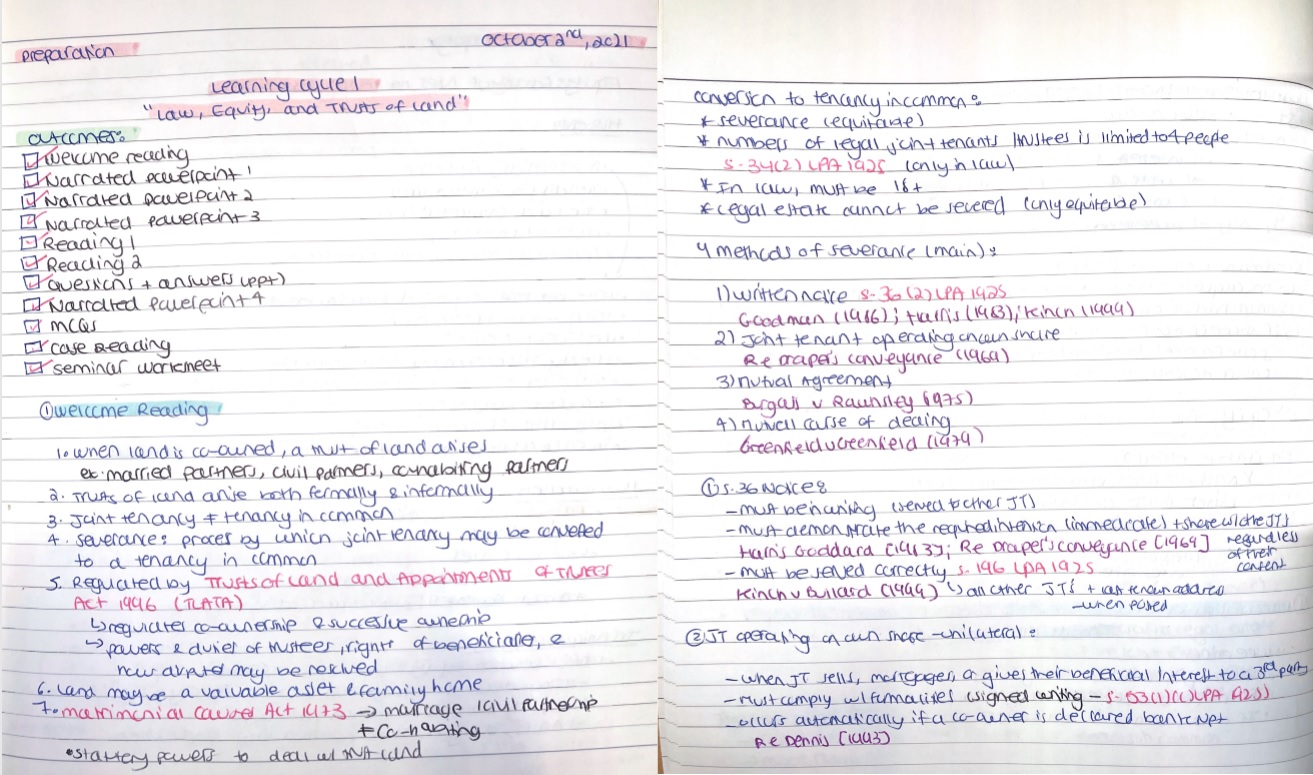 Preparation
October 2nd, 2021
Learning cycle 1
"Law, Equity, and Trusts of Land"
outcomes:
Welcome reading
Narrated powerpoint 1
Narrated powerpoint 2
Narrated powerpoint 3
Reading 1
Reading 2
questions + answers (ppt)
Narrated powerpoint 4
MCQs
case Reading
seminar worksheet
① Welcome Reading
1. when land is co-owned, a trust of land arises
ex: married partners, civil partners, cohabiting partners
2. Trusts of land arise both formally & informally
3. Joint tenancy ≠ tenancy in common
4. severance: process by which joint tenancy may be converted
to a tenancy in common
5. Regulated by Trusts of Land and Appointments of Trustees
Act 1996 (TLATA)
↳ regulates co-ownership & successive ownership
→ powers & duties of trustees, rights of beneficiaries, &
how disputes may be resolved
6. Land may be a valuable asset & family home
7. matrimonial causes Act 1973 → marriage / civil partnership
≠ co-habiting
• statutory powers to deal w/ land
conversion to tenancy in common:
* severance (equitable)
* numbers of legal joint tenants / trustees is limited to 4 people
s. 34(2) LPA 1925 (only in law)
* In law, must be 18+
* Legal estate cannot be severed (only equitable)
4 methods of severance (main):
1) written notice s. 36(2) LPA 1925
Goodman (1966); Harris (1983); Kinch (1999)
2) Joint tenant operating on own share
Re Draper's conveyance (1969)
3) mutual Agreement
Burgess v Rawnsley (1975)
4) mutual course of dealing
Greenfield v Greenfield (1979)
① s. 36 Notice:
- must be in writing (served to other JT)
- must demonstrate the required intention (immediate) + share w/ the JTs
Harris Goddard [1983]; Re Draper's conveyance [1969] regardless
of their
content
- must be served correctly s. 196 LPA 1925
Kinch v Bullard (1999) ↳ on other JTs + last known address
- when posted
② JT operating on own share - unilateral:
- when JT sells, mortgages, or gives their beneficial interest to a 3rd party
- must comply w/ formalities (signed writing - s. 53(1)(c) LPA 1925)
- occurs automatically if a co-owner is declared bankrupt
Re Dennis [1993]